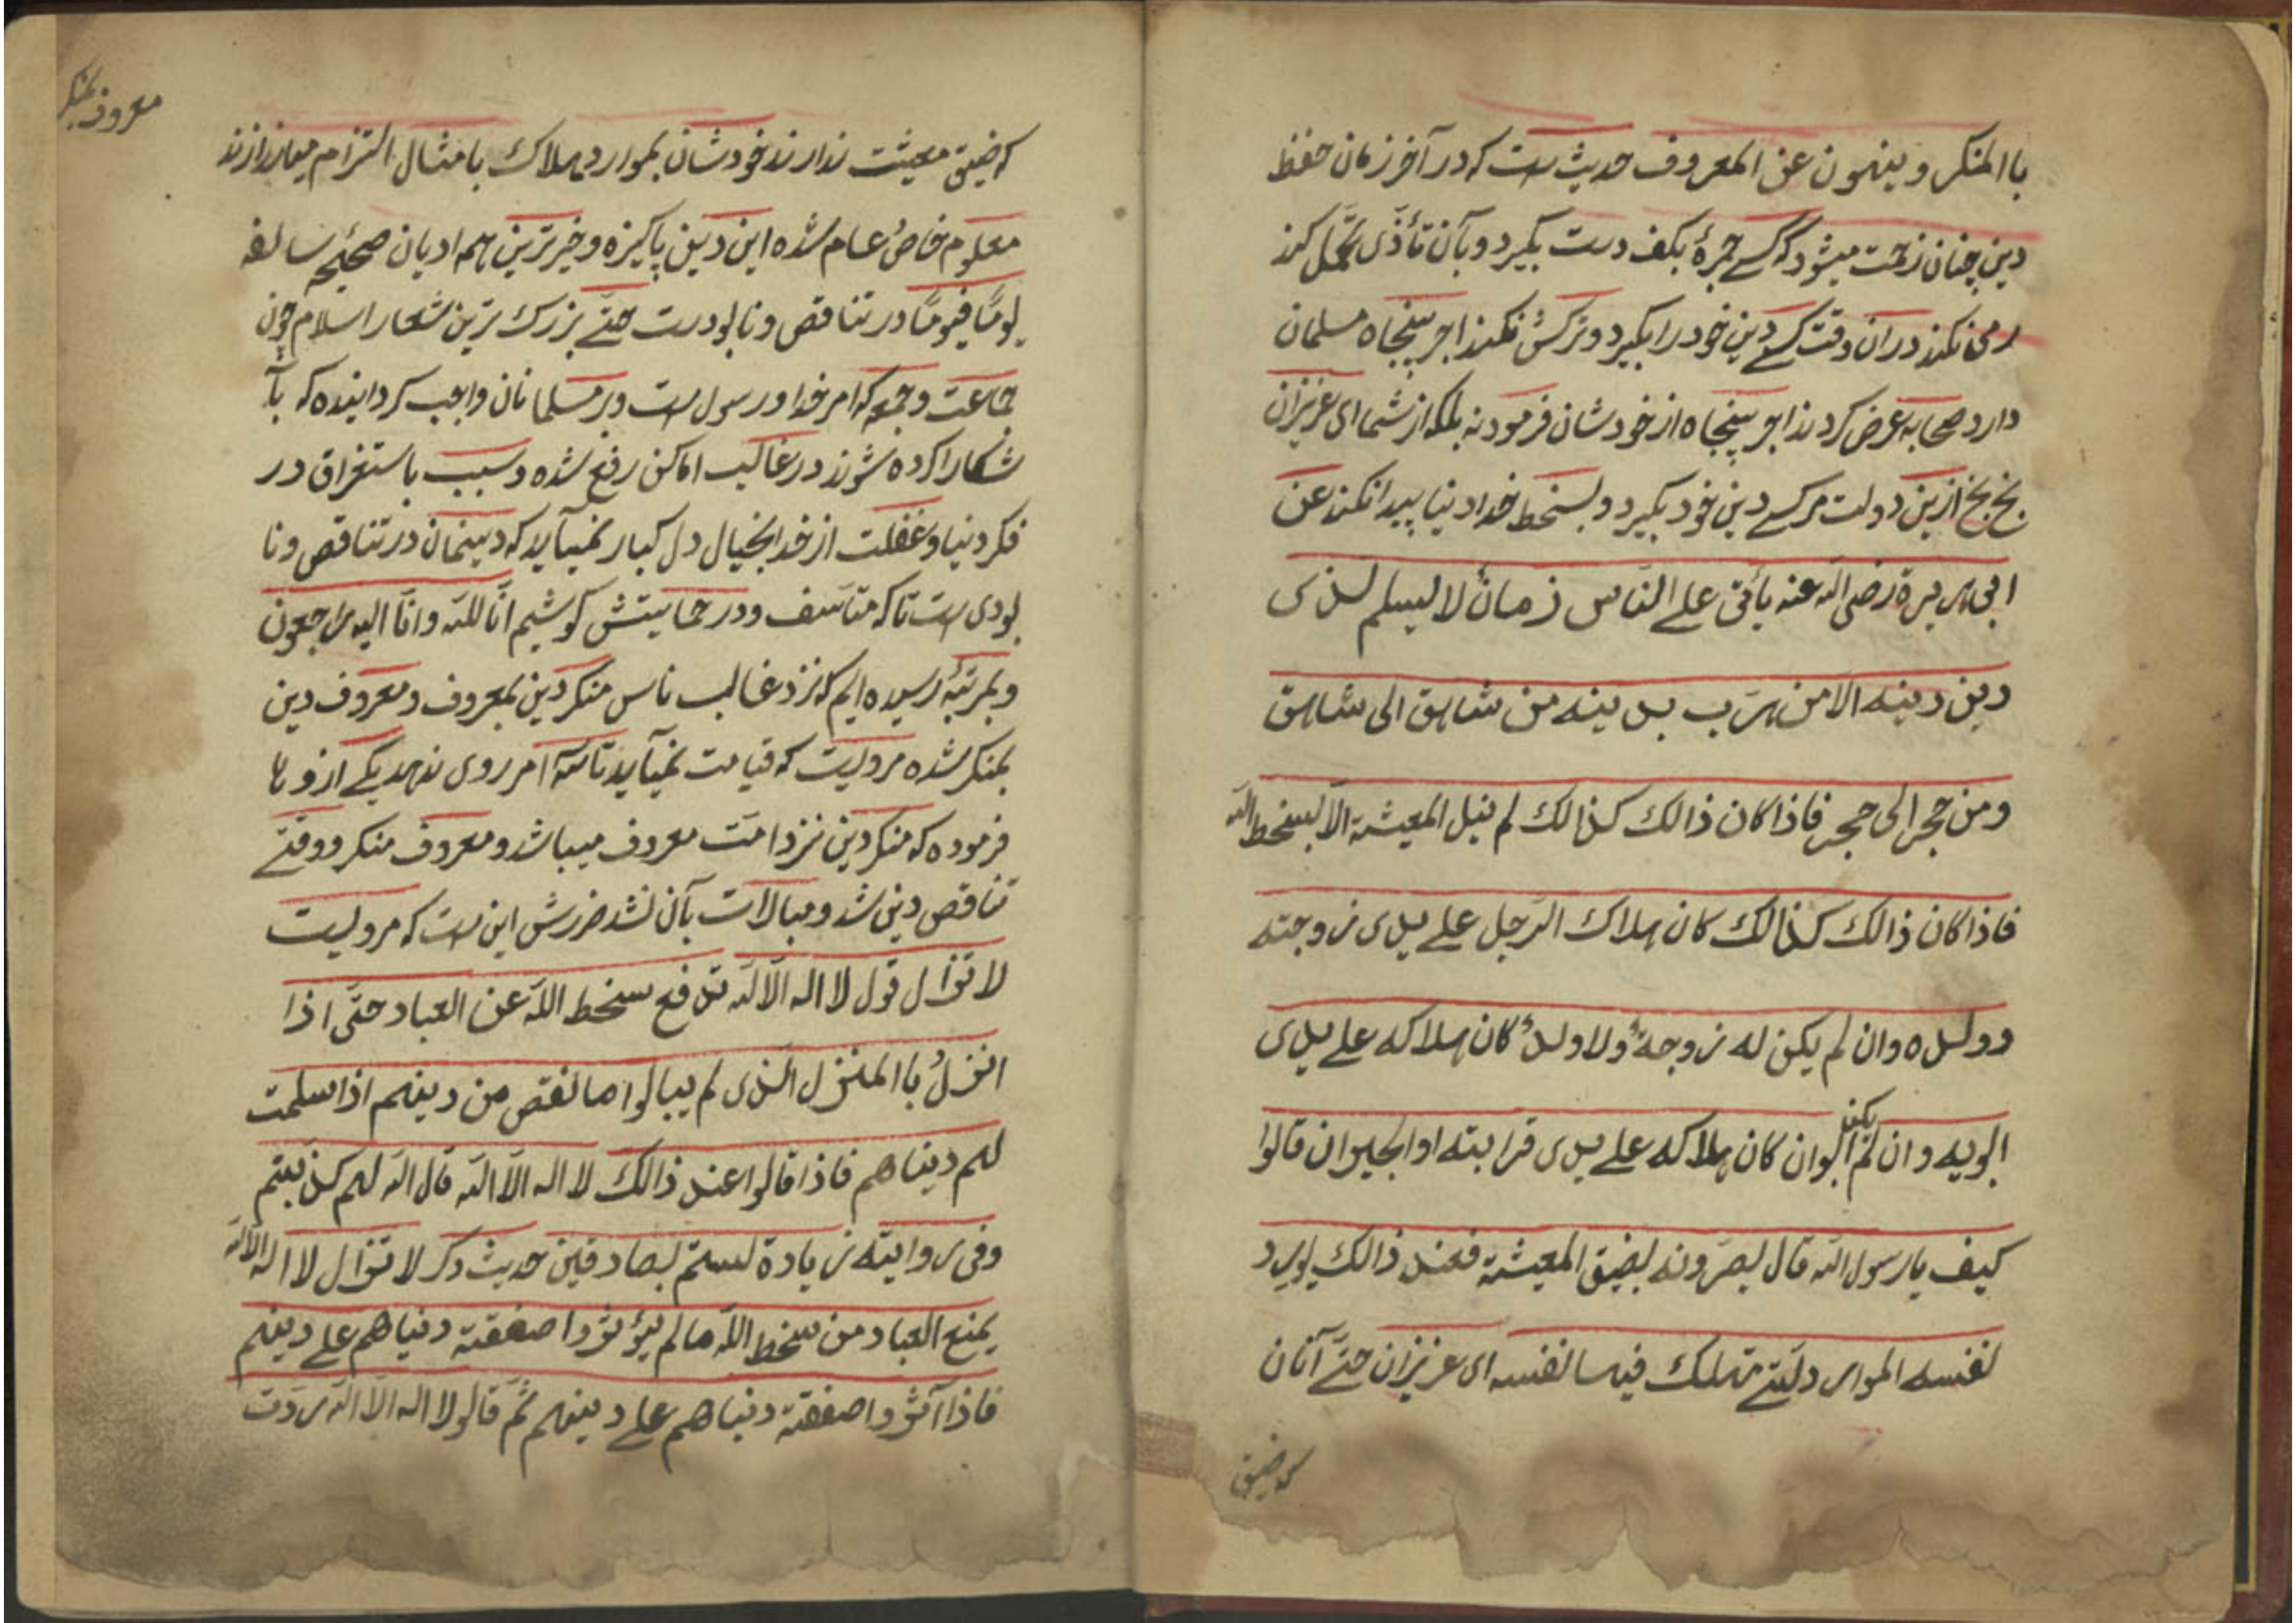 با المنکر و ینهون عن المعروف حدیث ست که در آخر زمان حفظ
دین چنان زحمت میشود که کسے جمرهٔ بکف دست بگیرد و بآن تأذّی تحمّل کند
رمی نکند در آن وقت کسے دین خود را بگیرد و ترکش نکند اجر پنجاه مسلمان
دارد صحابه عرض کردند اجر پنجاه از خودشان فرمود نه بلکه از شما ای عزیزان
بخ بخ ازین دولت مر کسے دین خود بگیرد و بسخط خدا دنیا پیدا نکند عن
ابی هریرة رضی الله عنه یأتی علے النّاس زمانٌ لا یسلم لذی
دین دینه الا من هرَب بدینه من شاهق الی شاهق
ومن حجر الی حجر فاذا کان ذالک کذالک لم ینل المعیشة الّا بسخط الله
فاذا کان ذالک کذالک کان هلاک الرّجل علے یدی زوجته
و ولده وان لم یکن له زوجةٌ ولا ولدٌ کان هلاکه علے یدی
ابویه و ان لم یکن ابوان کان هلاکه علے یدی قرابته او الجیران قالوا
کیف یا رسول الله قال یعیّرونه بضیق المعیشة فعند ذالک یورد
نفسه الموارد لّتے تهلک فیها نفسه ای عزیزان حتّے آنان
که ضیق
که ضیق معیشت ندارند خودشان بموارد هلاک بامثال التزام میاندازند
معلوم خاصُ عام شده این دین پاکیزه و خیرترین همه ادیان صحیحهٔ سالفه
یومًا فیومًا در تناقص و نابودست حتّے بزرک ترین شعار اسلام چون
جماعت و جمعه که امر خدا و رسول ست و بر مسلمانان واجب کردانیده که بآ
شکارا کرده شوند در غالب اماکن رفع شده و سبب باستغراق در
فکر دنیا و غفلت از خدا بخیال دل کبار نمیآید که دینمان در تناقص و نا
بودی ست تا که متأسف و در حمایتش کوشیم انّا لله وانّا الیه راجعون
و بمرتبهٔ رسیده ایم که نزد غالب ناس منکر دین بمعروف و معروف دین
بمنکر شده مرویست که قیامت نمیآید تا سه امر روی ندهد یکے ازوها
فرموده که منکر دین نزد امّت معروف میباشد و معروف منکر و وقتے
تناقص دین شد و مبالات بآن نشد ضررش این ست که مرویست
لا تزال قول لا اله الّا الله تدفع سخط اللّه عن العباد حتّی اذا
انزلُ با المنزل الذی لم یبالوا ما نقص من دینهم اذا سلمت
لهم دیناهم فاذا قالوا عند ذالک لا اله الّا الله قال الله لهم کذبتم
وفی روایته زیادة لستم بصادقین حدیث دکر لا تزال لا اله الّا الله
یمنع العباد من سخط اللّه ما لم یؤثروا صفقة دنیاهم علے دینهم
فاذا آثروا صفقة دنیاهم علے دینهم ثمّ قالو لا اله الّا الله ردّت
معروف بمنکر